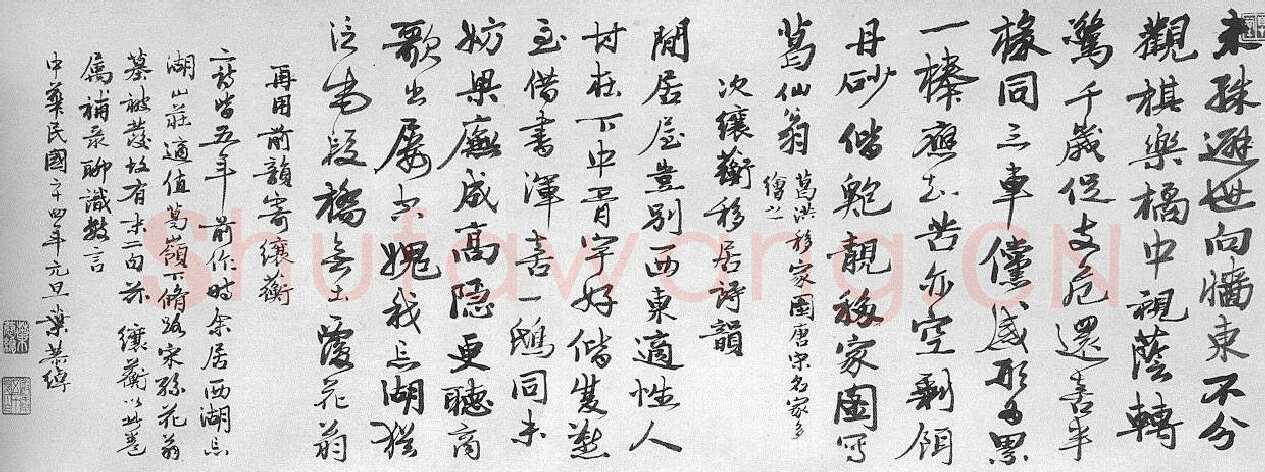 未殊避世向墻東不分
觀棋樂橘中視蔭轉
驚千歲促支危還喜半
椽同三車儻感形為累
一棒應知苦亦空剩領
丹砂偕鮑靚移家圖寫
葛仙翁 葛洪移家圖唐宋名家多
繪之
次纕蘅移居詩韻
閒居屋豈別西東適性人
材在下中胥宇好偕雙燕
至借書渾喜一鴟同未
妨梁廡成高隱更聽商
歌出屢空愧我忘湖猶
泛宅段橋無土覆花翁
再用前韻寄纕蘅
二詩皆五年前作時余居西湖忘
湖山莊適值葛嶺下脩路宋孫花翁
墓被發故有末二句茲纕蘅以此卷
屬補录聊識數言
中華民國二十四年元旦葉恭綽
Shufawang.CN